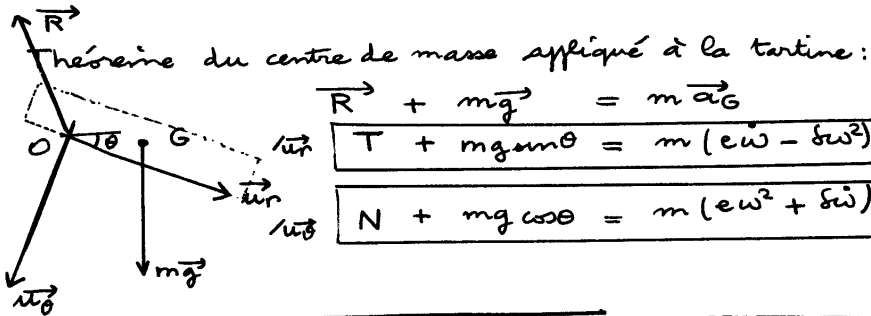 R⃗
Théorème du centre de masse appliqué à la tartine :
R⃗ + mg⃗ = m a⃗_G
O θ G /u⃗r T + mg sinθ = m (eω̇ − δω²)
u⃗r
/u⃗θ N + mg cosθ = m (eω² + δω̇)
mg⃗
u⃗θ